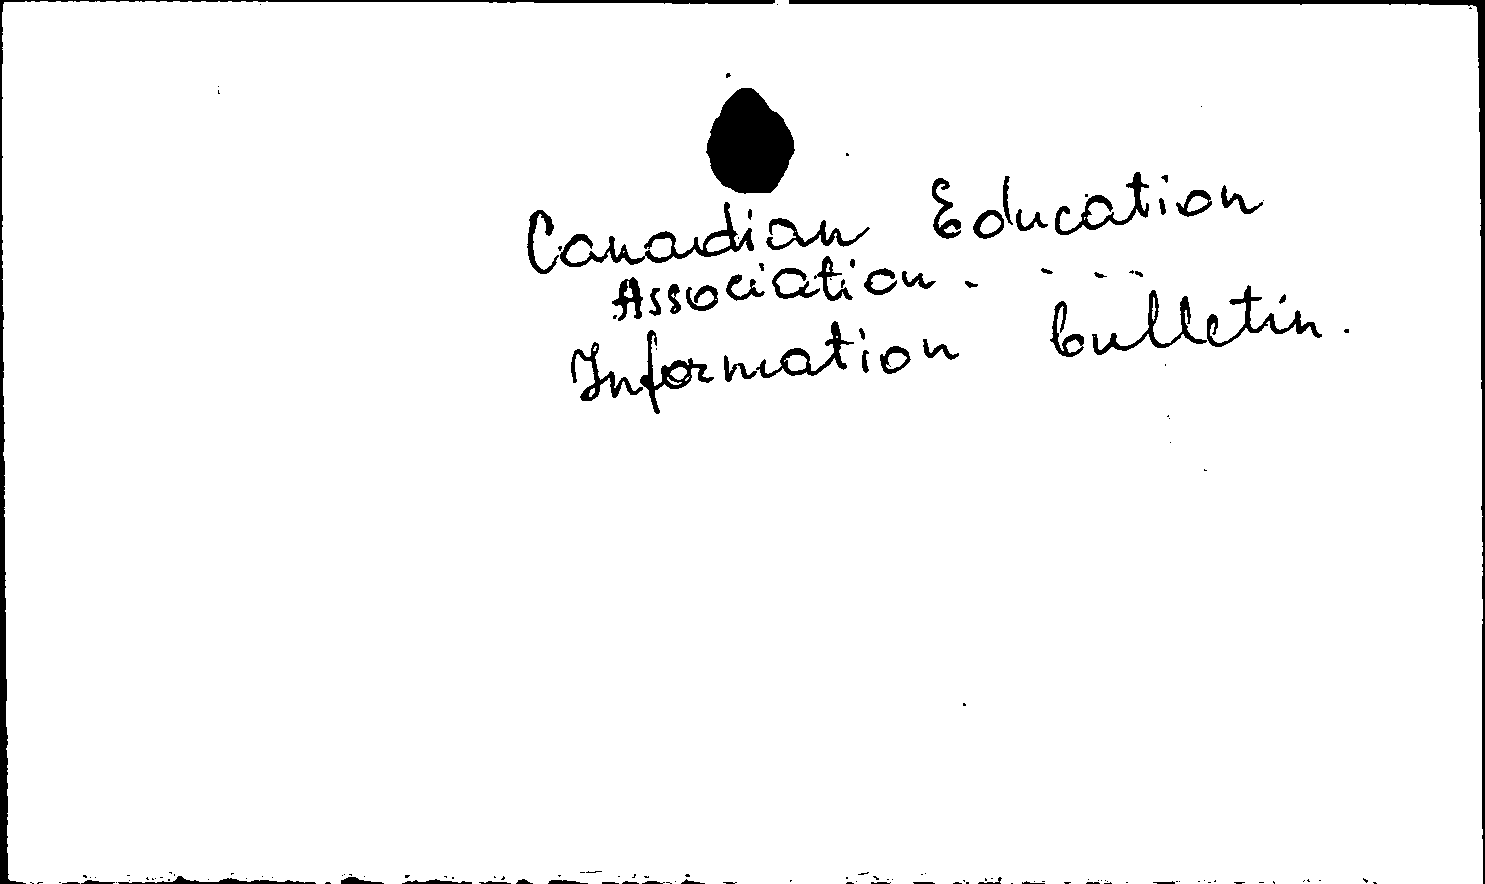 Canadian Education
Association. - - -
Information bulletin.